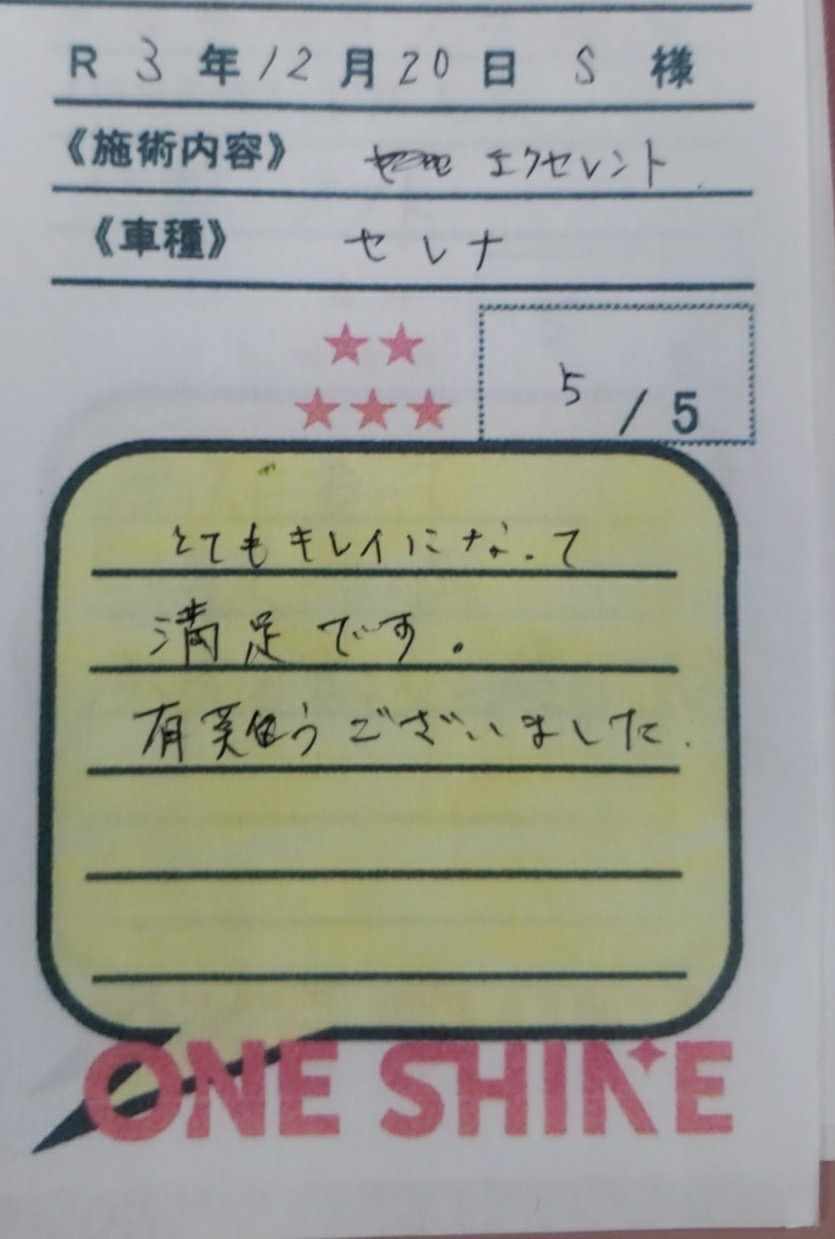 R 3年12月20日 S 様
《施術内容》 エクセレント
《車種》 セレナ
5 / 5
とてもキレイになって
満足です。
有難うございました.
ONE SHINE